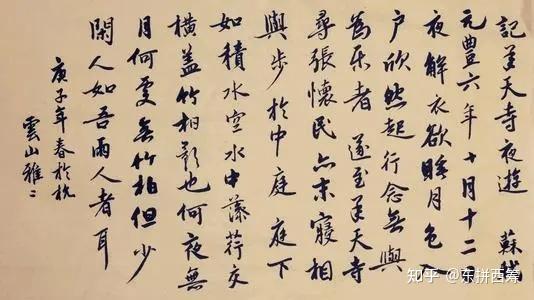 記承天寺夜遊 蘇軾
元豐六年十月十二日
夜解衣欲睡月色入
户欣然起行念無與
為乐者遂至承天寺
尋張懷民亦未寢相
與步於中庭庭下
如積水空水中藻荇交
橫盖竹柏影也何夜無
月何處無竹柏但少
閑人如吾兩人者耳
庚子年春於杭
雲山雅二
知乎 @东拼西筹